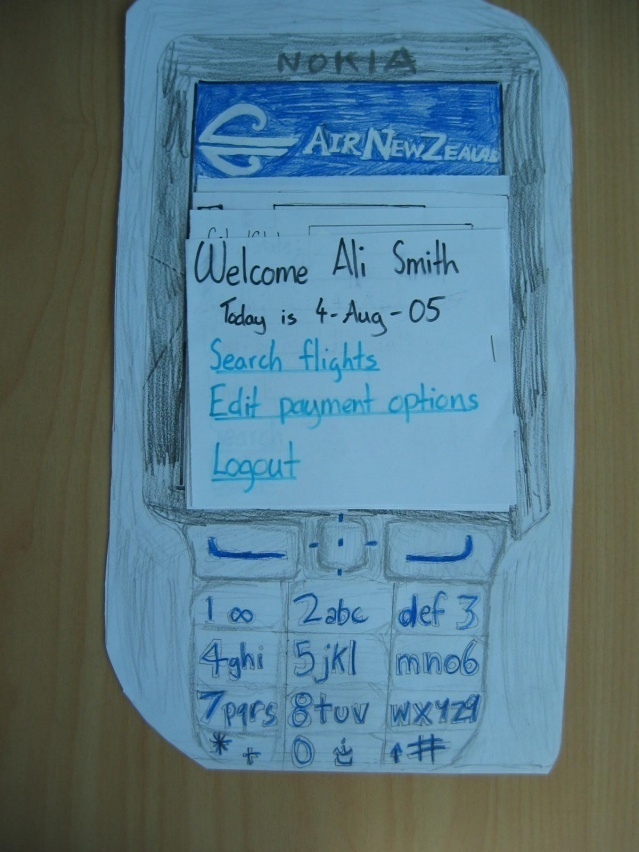 NOKIA
AIR NEW ZEALAND
Welcome Ali Smith
Today is 4-Aug-05
Search flights
Edit payment options
Logout
1 ∞ 2abc def 3
4ghi 5jkl mno6
7pqrs 8tuv wxyz9
* + 0 #